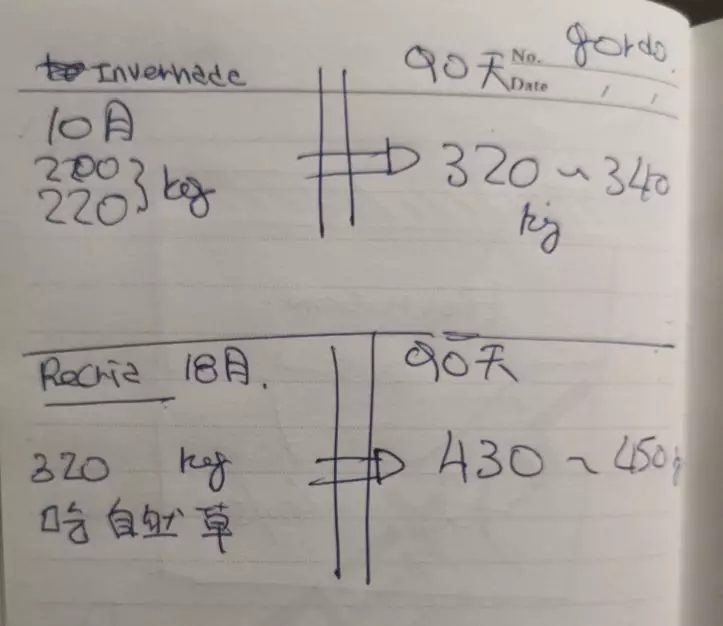 Invernada
90天 No. gordo.
Date / /
10月
200 } kg
220
320 ~ 340
kg
Recria 18月. 90天
320 kg 430 ~ 450
吃自然草